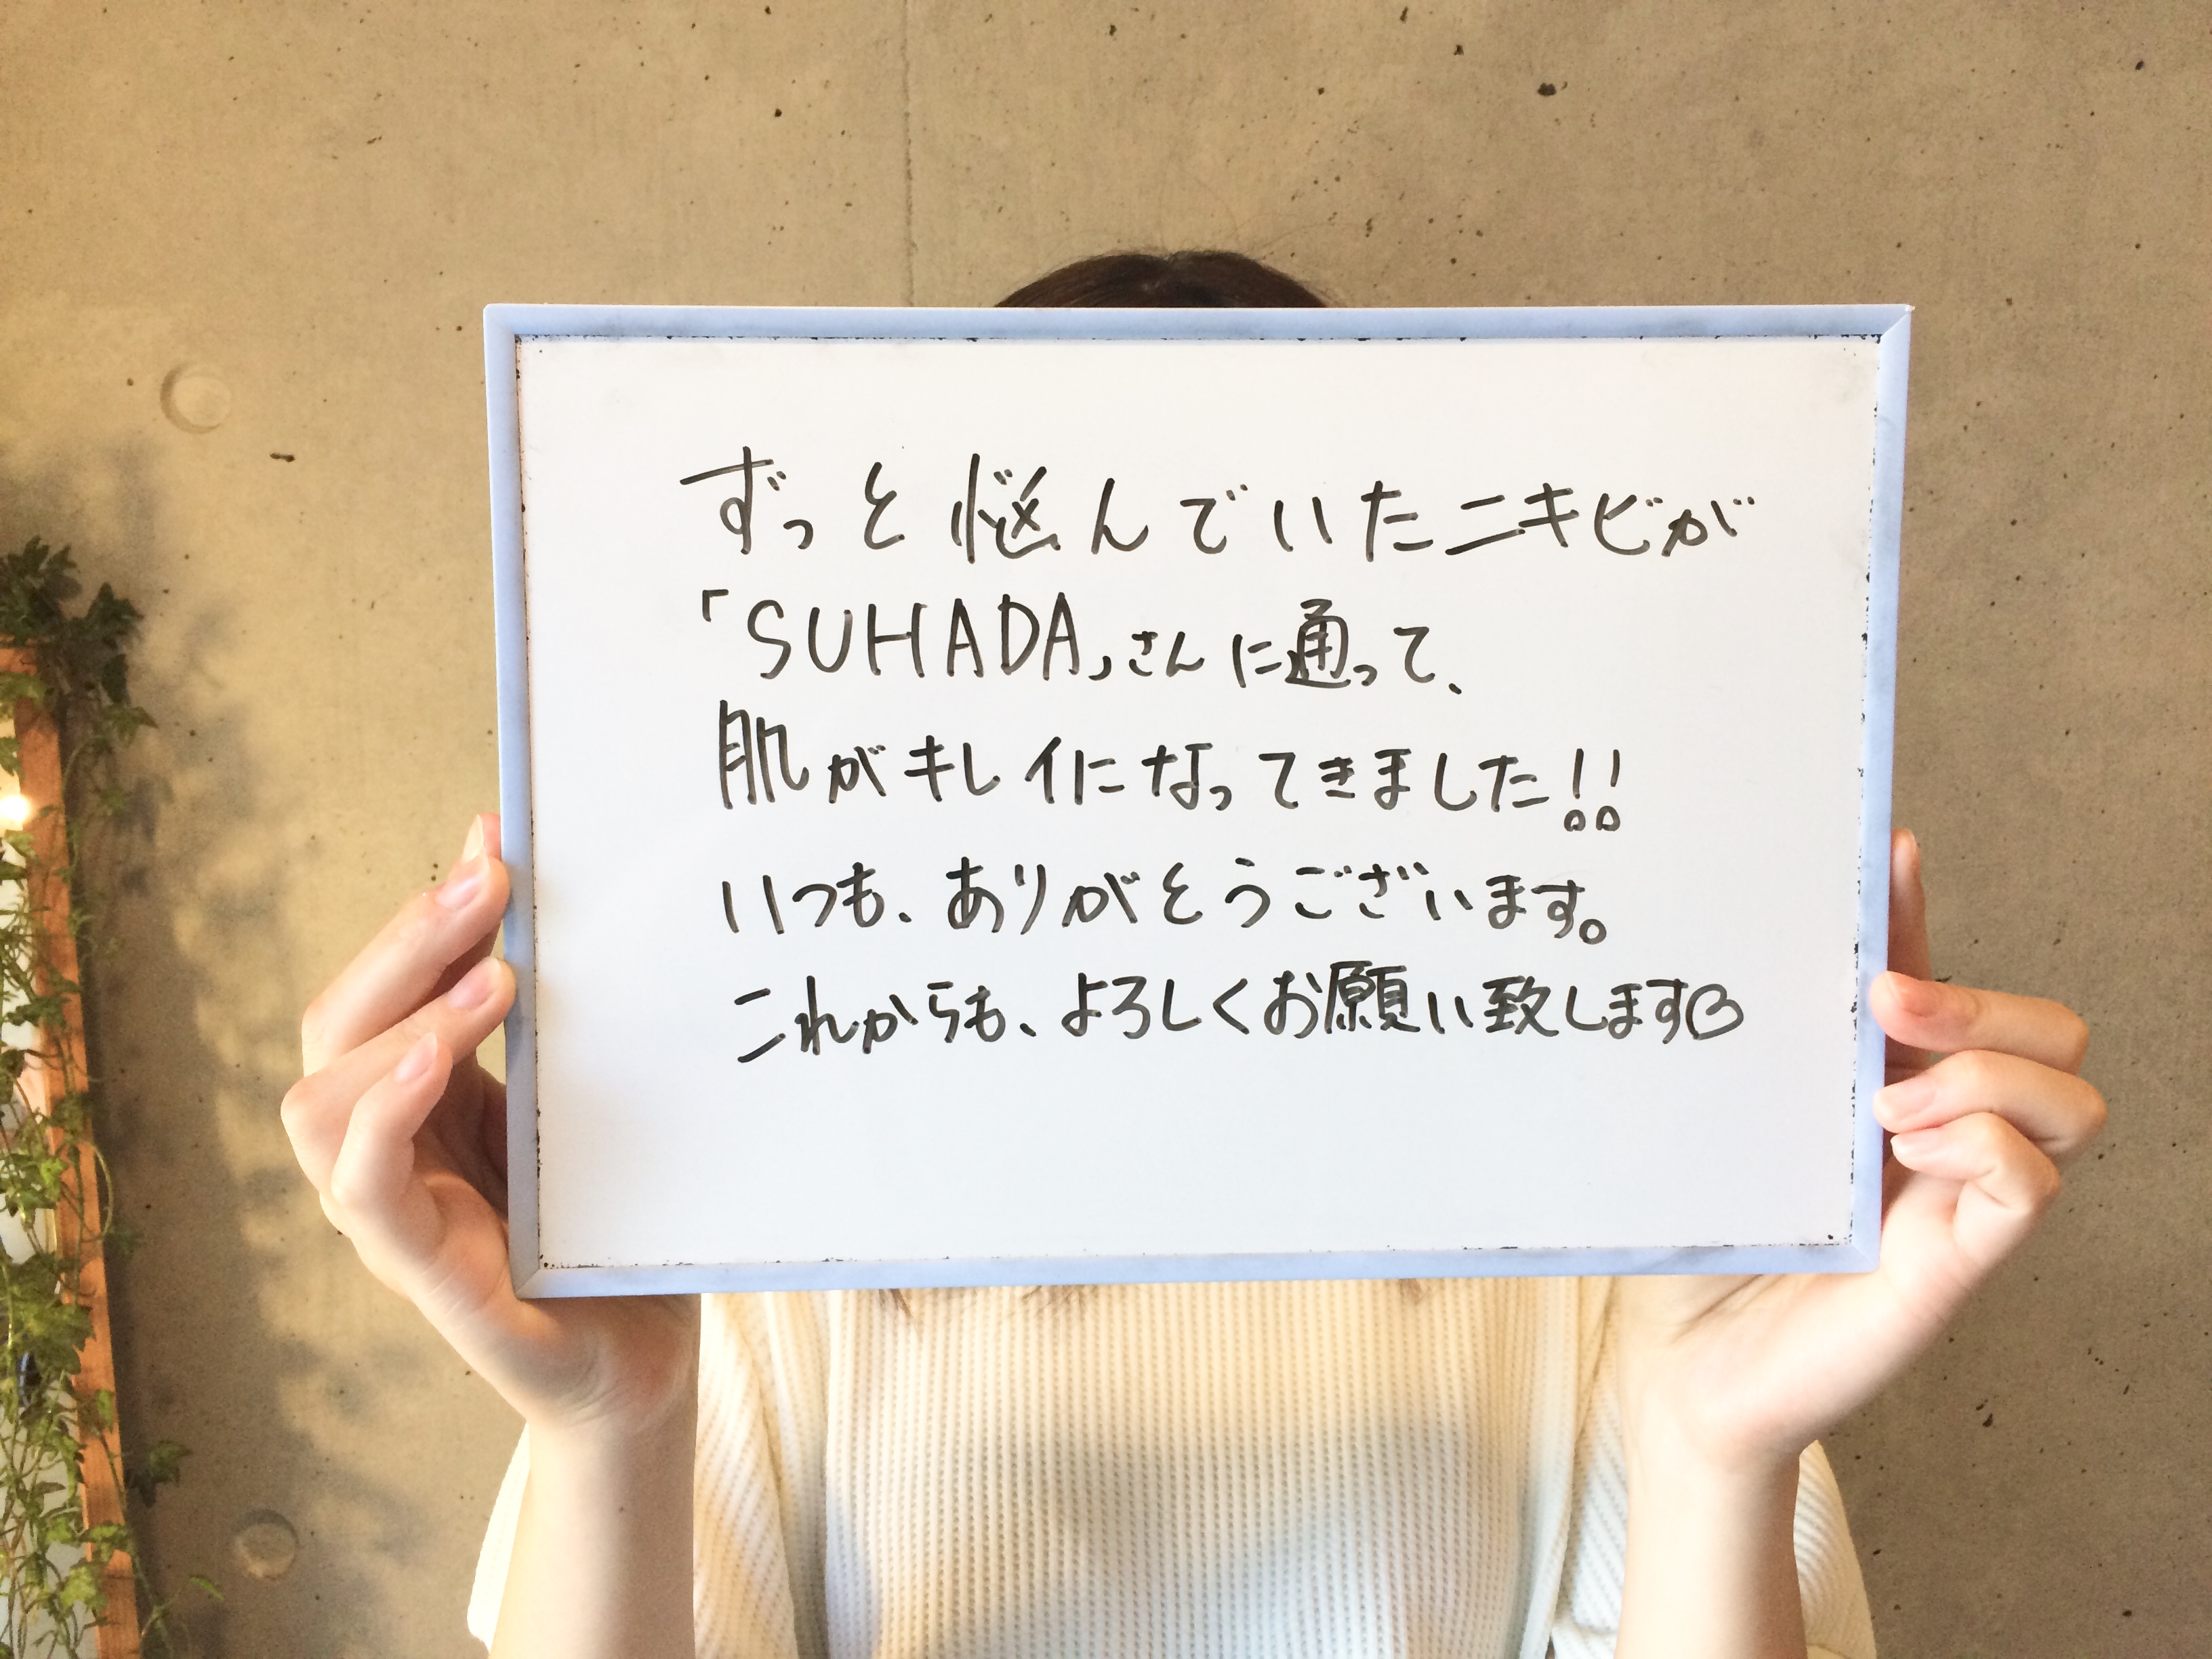 ずっと悩んでいたニキビが
「SUHADA」さんに通って、
肌がキレイになってきました!!
いつも、ありがとうございます。
これからも、よろしくお願い致します♡